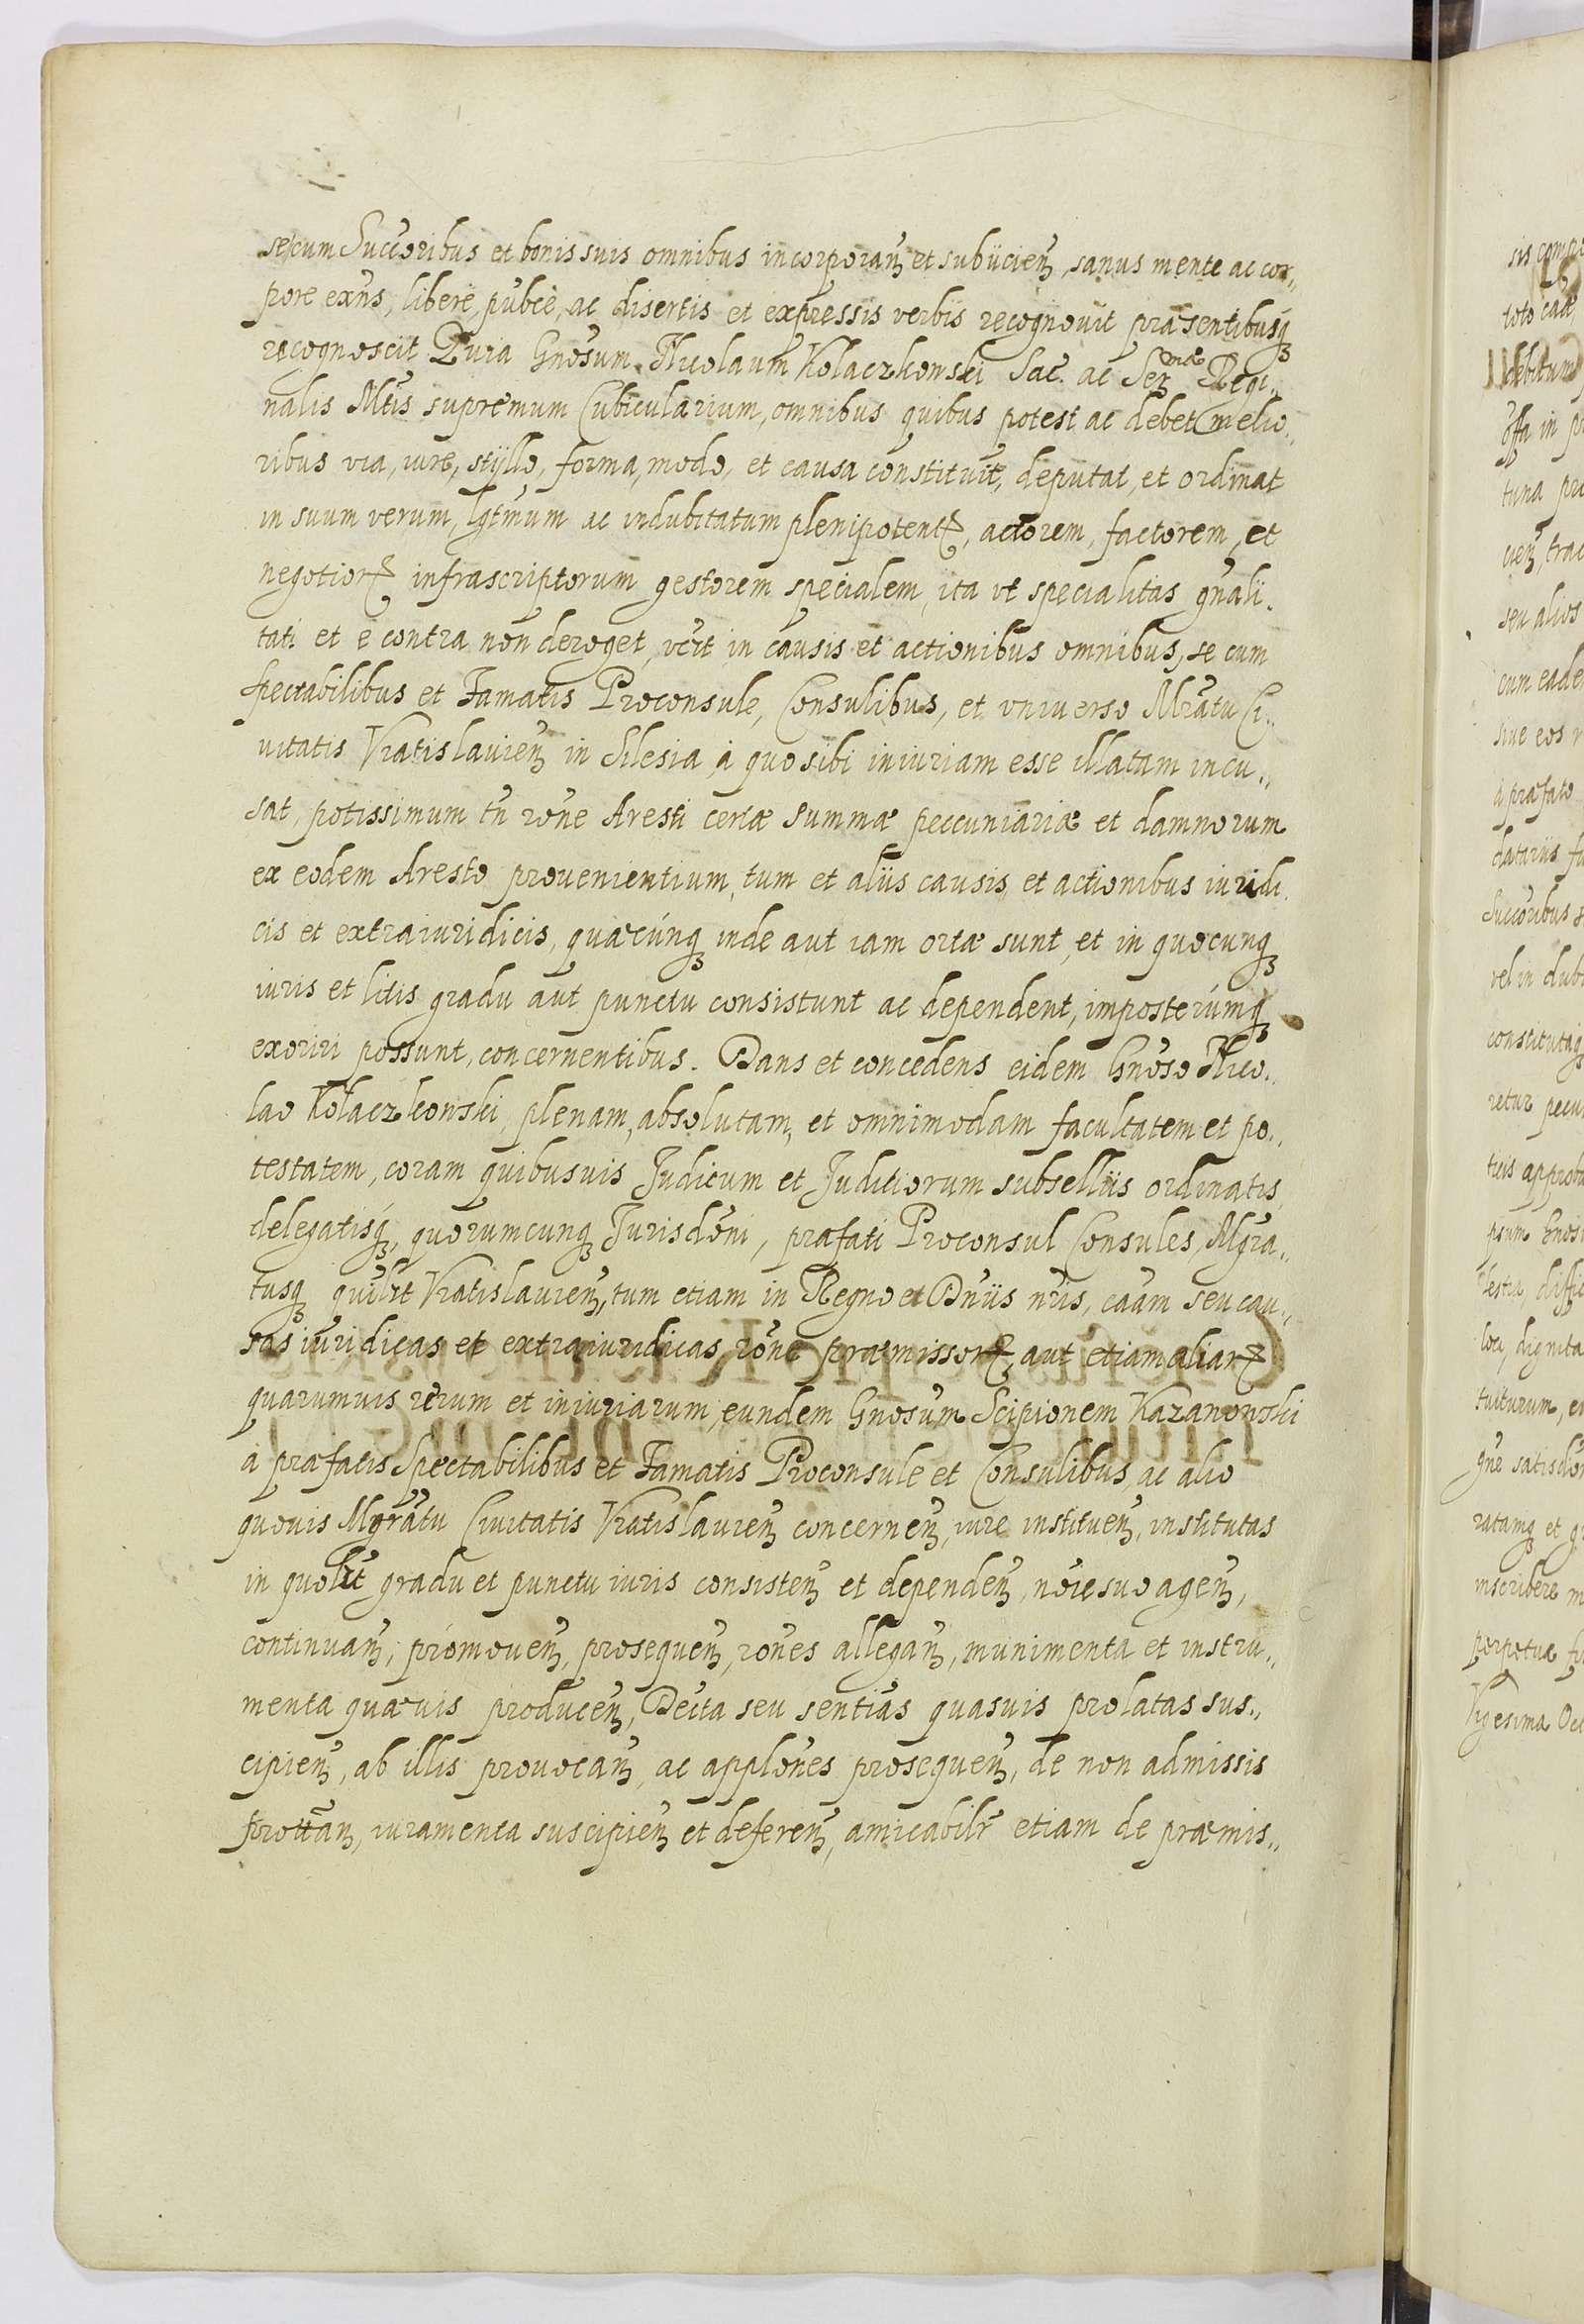 se cum Succoribus et bonis suis omnibus incorporanꝫ et subiicienꝫ, sanus mente ac cor„
pore exns, libere, publce, ac disertis et expressis verbis recognouit præsentibusqꝫ
recognoscit Quia Gnosum Nicolaum Kolaczkowski Sac. ac Serᵐᵃᵉ Regi„
nalis Mtis supremum Cubicularium, omnibus quibus potest ac debet melio„
ribus via, iure, styllo, forma, modo, et causa constituit, deputat, et ordinat
in suum verum, lgtmum ac indubitatum plenipotentꝝ, actorem, factorem, et
negotiorꝝ infrascriptorum gestorem specialem, ita vt specialitas gnali„
tati et e contra non deroget, vczt in causis et actionibus omnibus, se cum
Spectabilibus et Famatis Proconsule, Consulibus, et vniuerso Mratu Ci„
uitatis Vratislauienꝫ in Silesia, à quo sibi iniuriam esse illatam incu„
sat, potissimum tn rone Aresti certæ summæ peccuniariæ et damnorum
ex eodem Aresto prouenientium, tum et aliis causis et actionibus iuridi„
cis et extraiuridicis, quæcunqꝫ inde aut iam ortæ sunt, et in quocunqꝫ
iuris et litis gradu aut punctu consistunt ac dependent, imposterumqꝫ
exoriri possunt, concernentibus. Dans et concedens eidem Gnoso Nico„
lao Kolaczkowski, plenam, absolutam, et omnimodam facultatem et po„
testatem, coram quibusuis Judicum et Juditiorum subselliis ordinatis,
delegatisqꝫ, quorumcunqꝫ Jurisdoni, præfati Proconsul Consules, Mgra„
tusqꝫ quilbt Vratislauienꝫ, tum etiam in Regno et Dniis nris, caam seu cau„
sas iuridicas et extraiuridicas, rone præmissorꝝ, aut etiam aliarꝝ
quarumuis rerum et iniuriarum, eundem Gnosum Scipionem Kazanowski
à præfatis Spectabilibus et Famatis Proconsule et Consulibus, ac alio
quouis Mgratu Ciuitatis Vratislauienꝫ concernenꝫ, iure instituenꝫ, institutas
in quolbt gradu et punctu iuris consistenꝫ et dependenꝫ, noie suo agenꝫ,
continuanꝫ, promouenꝫ, prosequenꝫ, rones alleganꝫ, munimenta et instru„
menta quæuis producenꝫ, Decta seu sentias quasuis prolatas sus„
cipienꝫ, ab illis prouocanꝫ, ac applones prosequenꝫ, de non admissis
prottanꝫ, iuramenta suscipienꝫ et deferenꝫ, amicabilr etiam de præmis„